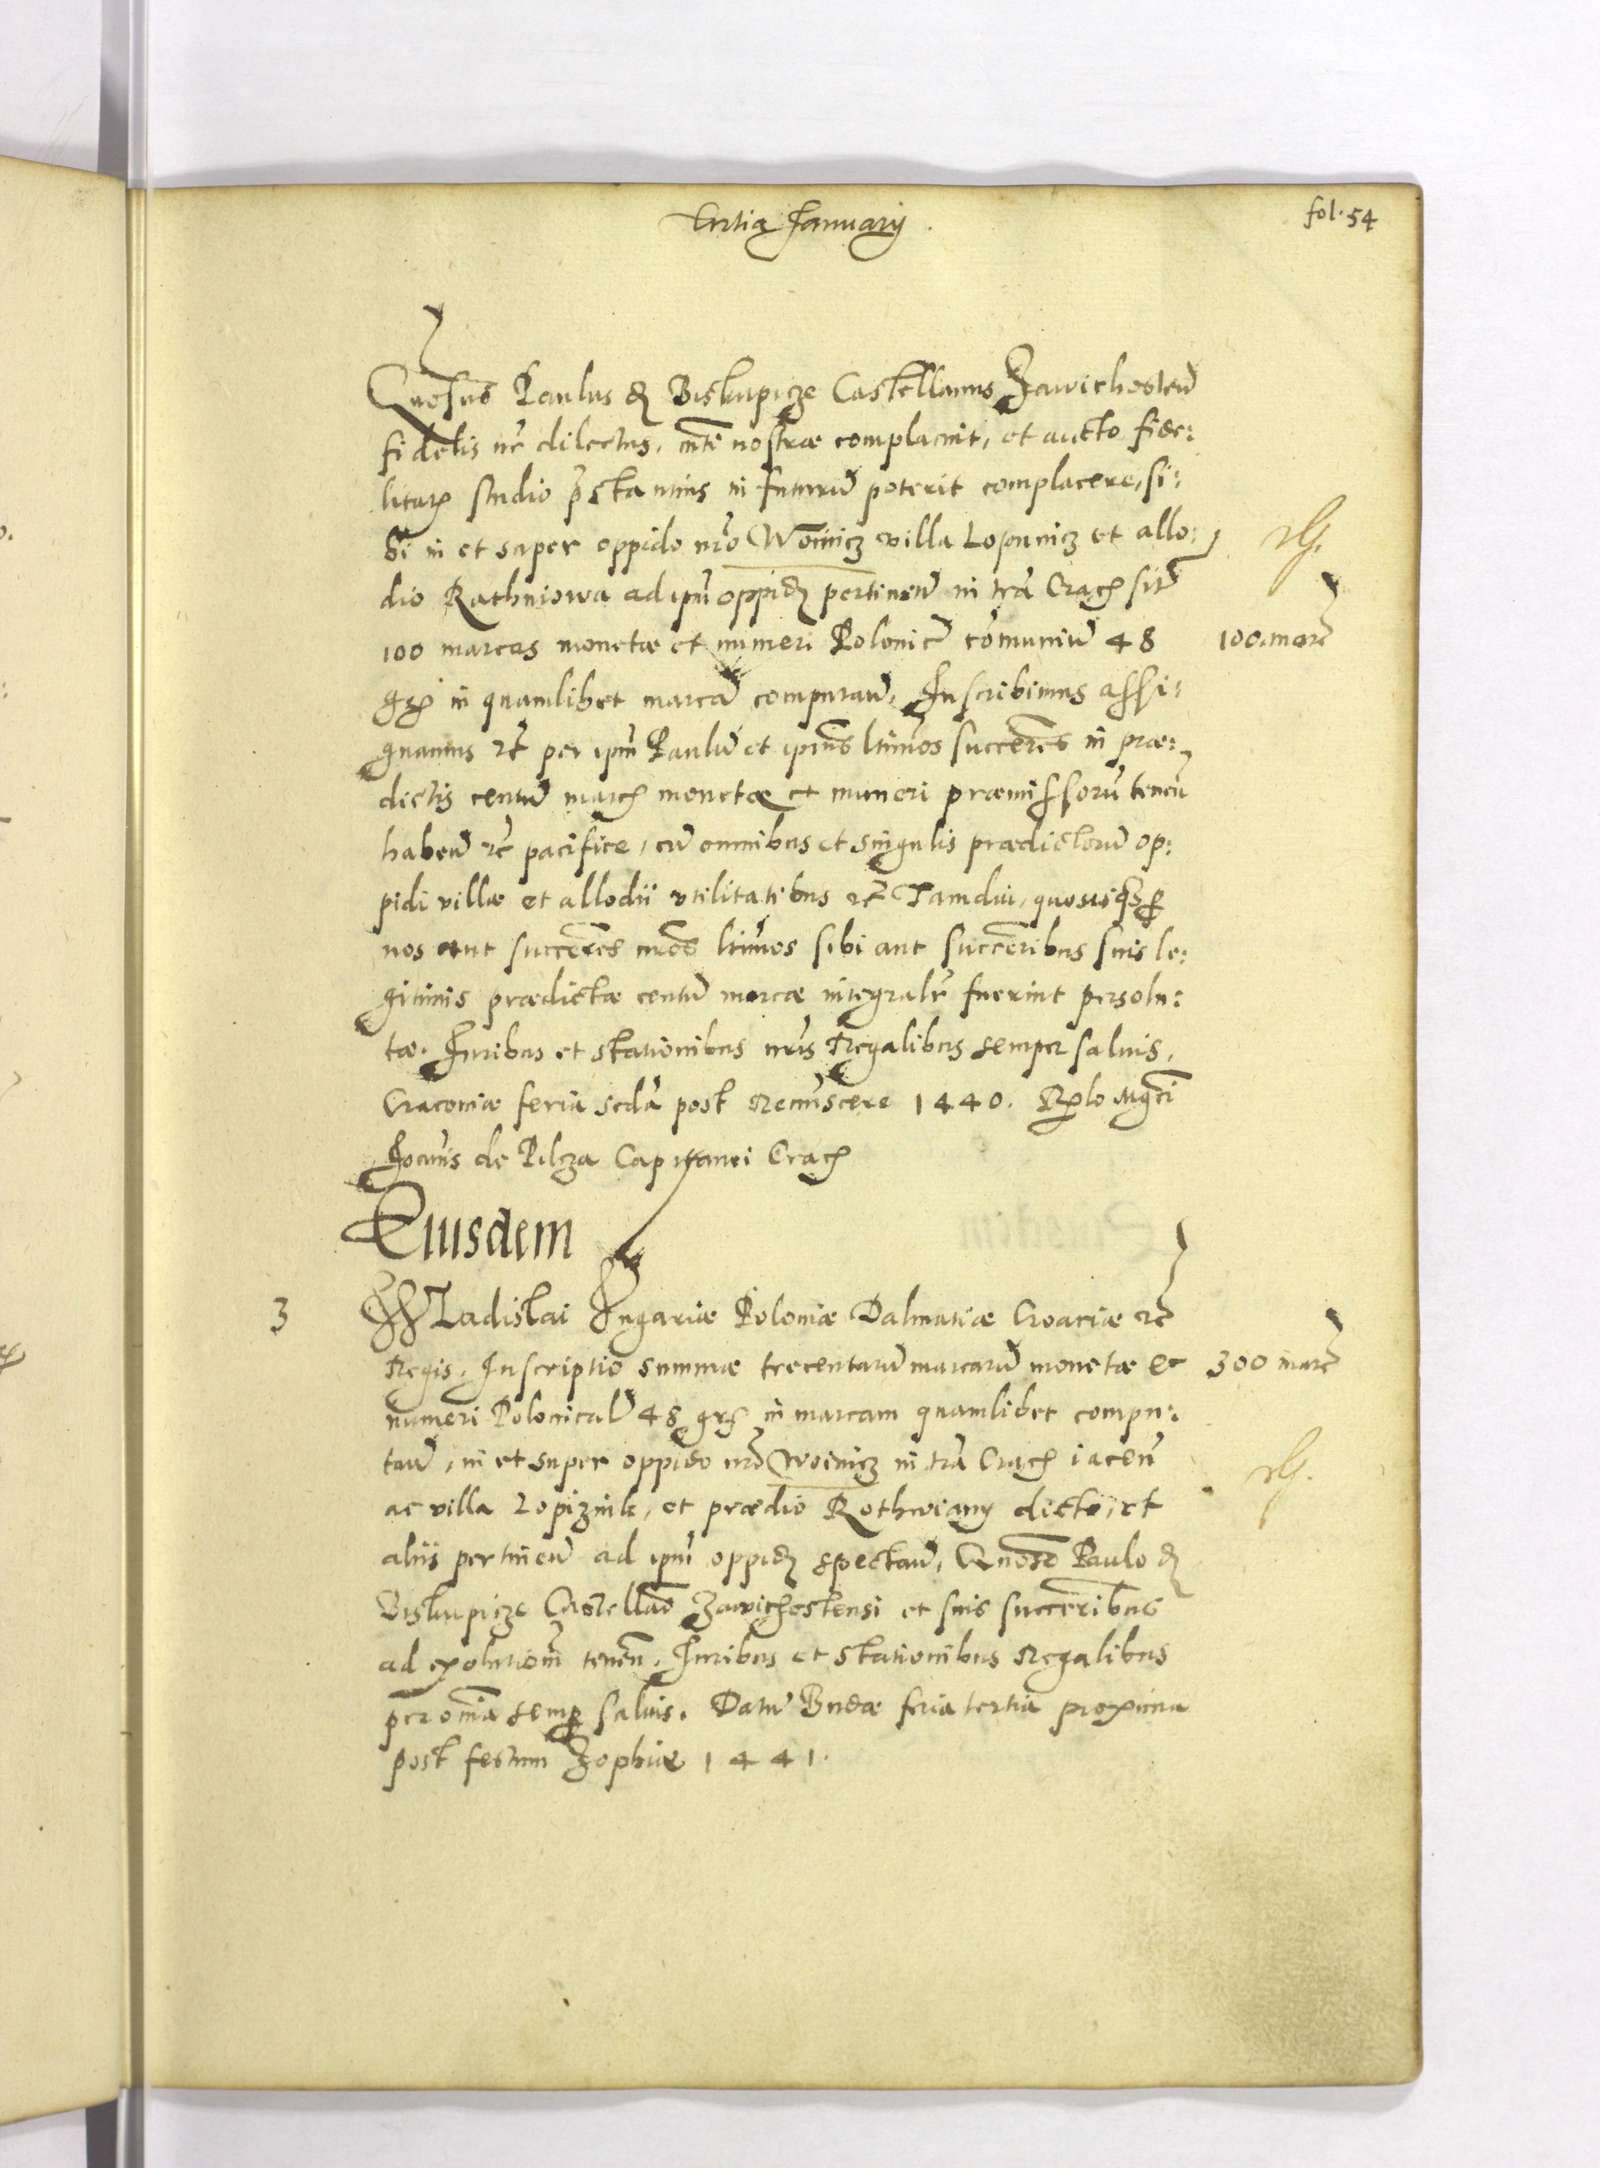 Tertia January
fol. 54
Gnosus Paulus de Biskupicze Castellanus Zawichosten
fidelis nr dilectus, mti nostræ complacuit, et aucto fide:
litatis studio pstantius in futurū poterit complacere, si:
bi in et super oppido nro Woinicz villa Lopunicz et allo:
dio Rathniowa ad ipm oppidum pertinen in tra Crach sit
100 marcas monetæ et numeri Polonic cōmuniū 48
100. marc
gros in quamlibet marcā computan, Inscribimus assi:
gnamus etc per ipm Paulū et ipius ltimos succeres in præ:
dictis centū march monetæ et numeri præmissorū tenen
haben etc pacifice, cū omnibus et singulis prædictorū op:
pidi villæ et allodii vtilitatibus etc Tamdiu, quousqʒ per
nos aut succeres nros ltimos sibi aut succeribus suis le:
gitimis prædictæ centū marcæ integralr fuerint persolu:
tæ. Iuribus et stationibus nris Regalibus semper saluis.
Cracouiæ feria scda post Reminiscere 1440. Rlo Mgci
Joannis de Pilcza Capitanei Crach
Eiusdem
3
Wladislai Vngariæ Poloniæ Dalmatiæ Croaciæ etc
Regis. Inscriptio summæ trecentarū marcarū monetæ et
300 marc
numeri Polonical 48 gros in marcam quamlibet compu:
tan, in et super oppido nro Woinicz in tra Crach iacen
ac villa Lopiznik, et prædio Rothwiany dicto, et
aliis pertinen ad ipm oppidum spectan, Gnoso Paulo de
Biskupicze Castellano Zawichostensi et suis succeribus
ad exolutiom tenen. Iuribus et stationibus Regalibus
per omia semper saluis. Datū Budæ feria tertia proxima
post festum Zophiæ 1441.